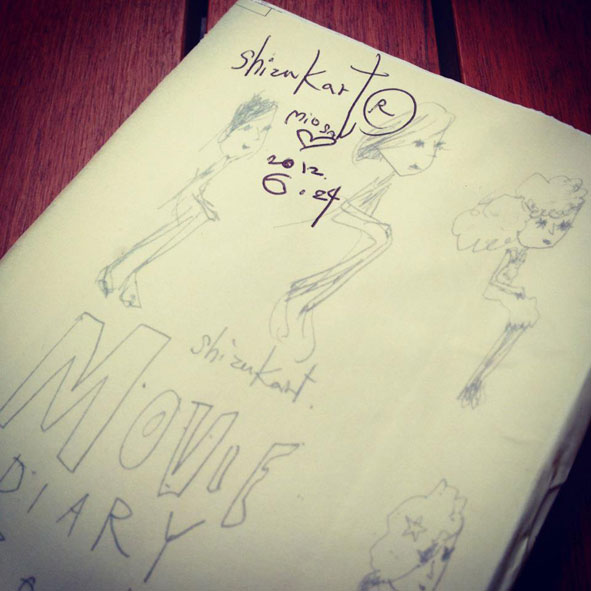 shizukart Ⓡ
miosa
2012.
6.24
shizukart.
MOVIE
DIARY